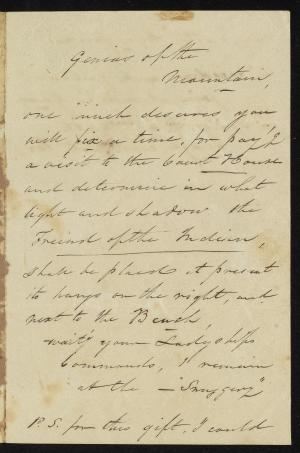 Genius of the
Mountain,
one much desires you
will fix a time, for pay'g
a visit to the Court House
and determine in what
light and shadow the
Friend of the Indian,
shall be placed at present
it hangs on the right, and
next to the Bench,
wait'g your Ladyships
Commands, I remain
at the "Snuggery"
P.S. for this gift, I could